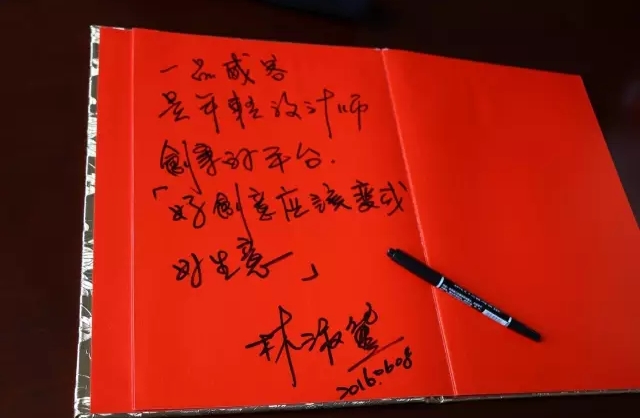 一品威客
是年轻设计师
創業的平台.
「好創意应該變成
好生意」
林淑
20160608